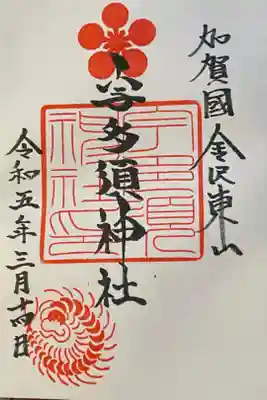 加賀國金沢東山
宇多須神社
令和五年三月十四日